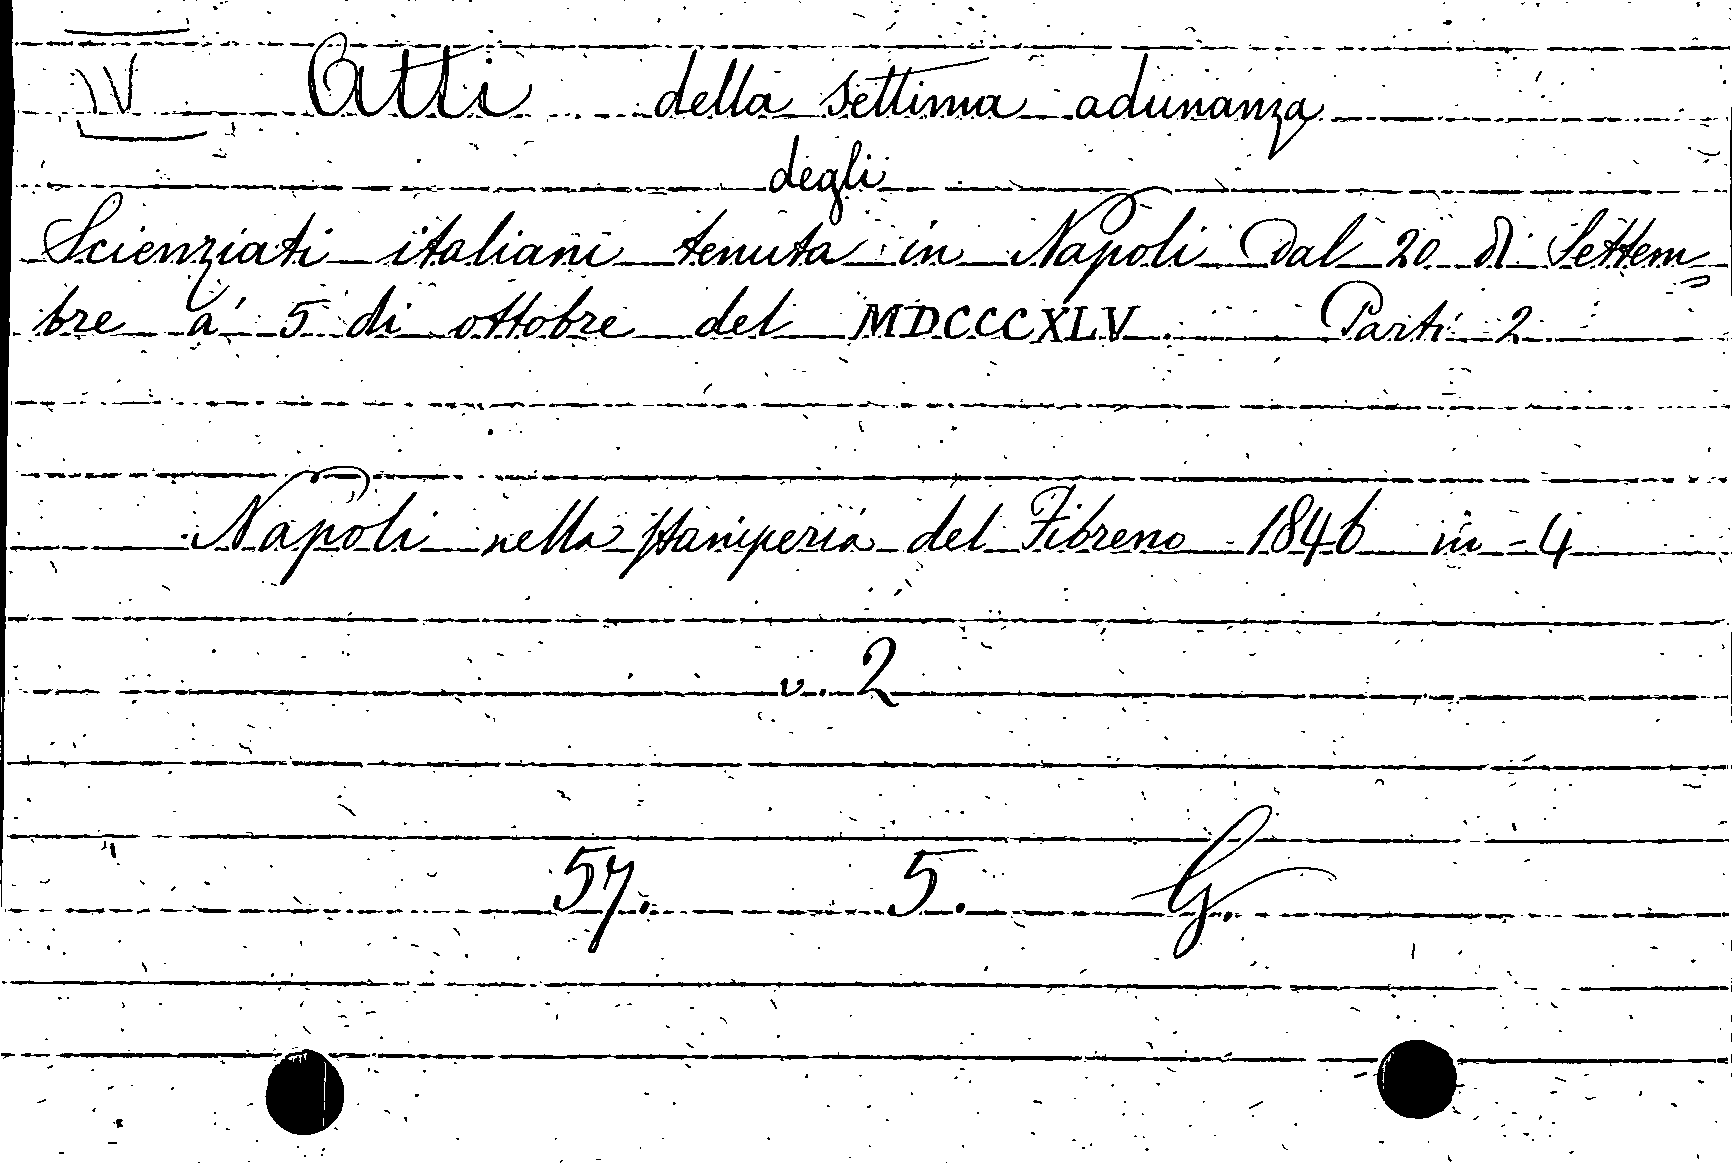 IV Atti della settima adunanza
degli
Scienziati italiani tenuta in Napoli dal 20 di Settem
bre a' 5 di ottobre del MDCCCXLV Parti 2
Napoli nella stamperia del Fibreno 1846 in-4
v. 2
57. 5. G.